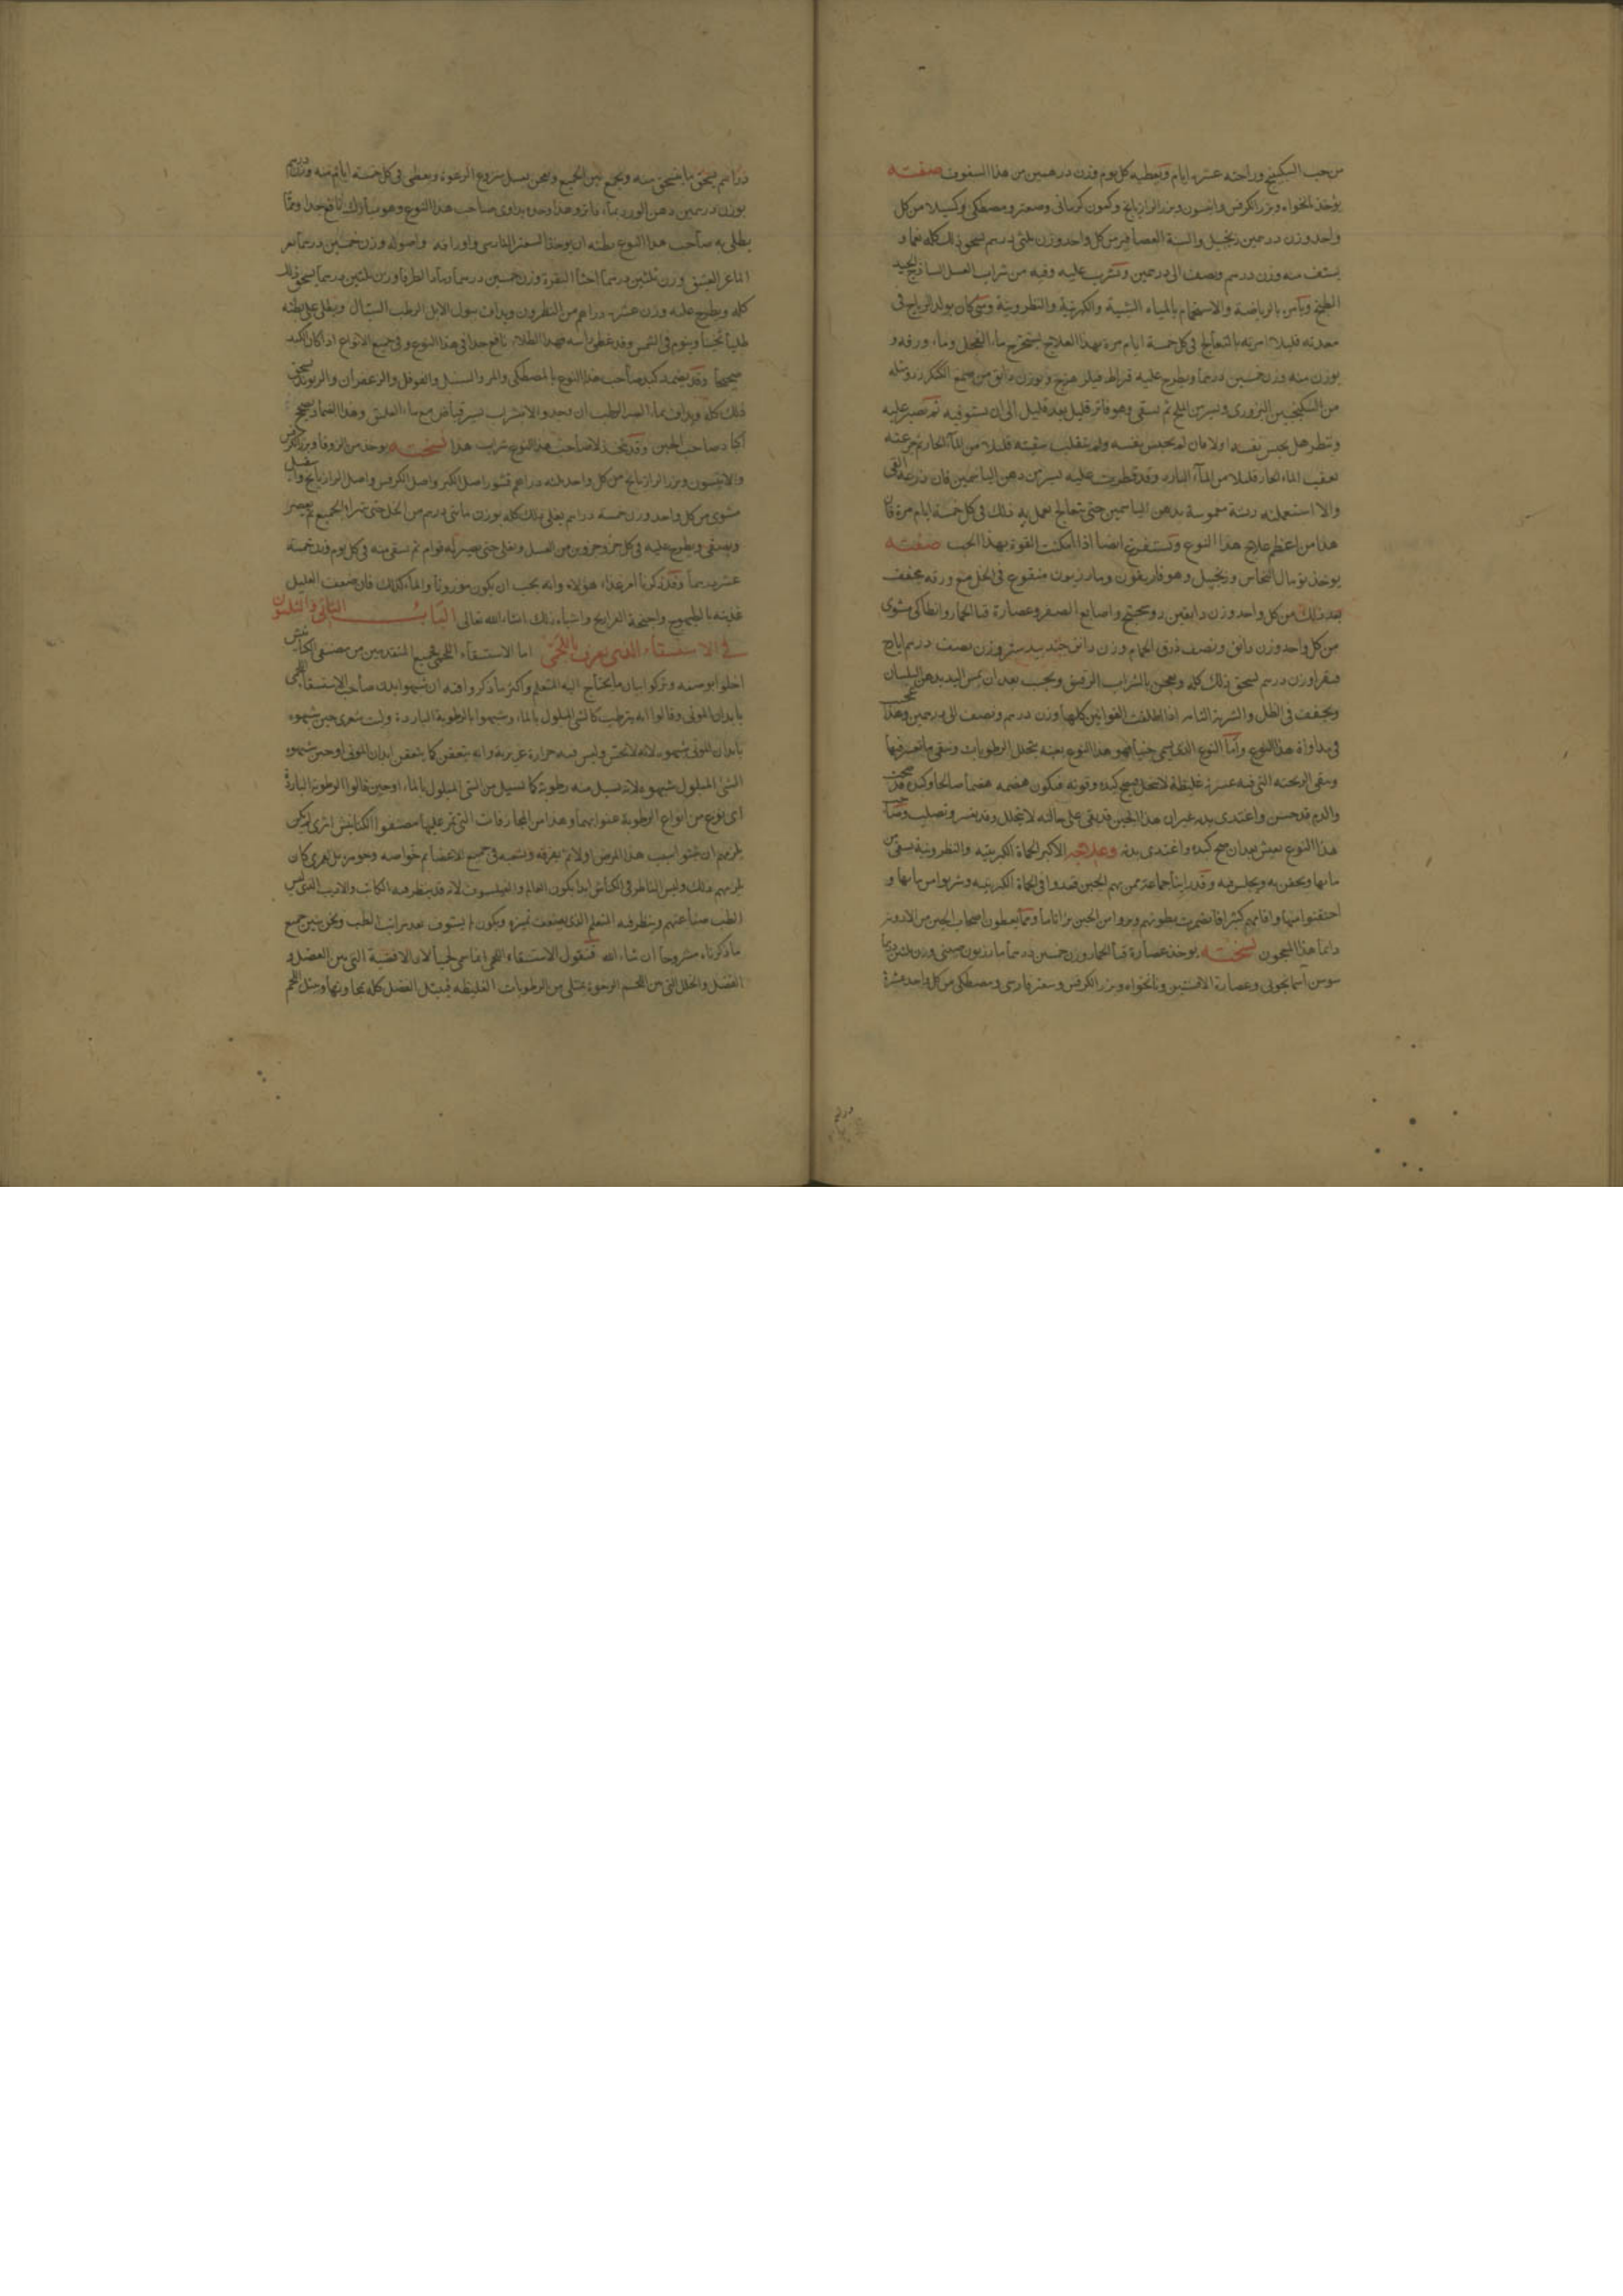 من حب السكبينج وراحته عشرة ايام وتعطيه كل يوم وزن درهمين من هذا السفوف صفته
يؤخذ نانخواه وبزر الكرفس وانيسون وبزر الرازيانج وكمون كرمانى وصعتر ومصطكى وكسيلا من كل
واحد وزن درهمين زنجبيل والسنة العصافير من كل واحد وزن ثلثى درهم يسحق ذلك كله نعما و
يستف منه وزن درهم ونصف الى درهمين ويشرب عليه وفيه من شراب العسل الساذج الجيد
الطبخ ويأمر بالرياضة والاستحمام بالمياه الشبية والكبريتية والنطرونية ومتى كان يولد الرياح فى
معدته قليلا امرته بالتعالج فى كل خمسة ايام مرة بهذا العلاج يستخرج ماء الفجل وماء ورقه و
يوزن منه وزن خمسين درهما ويطرح عليه قيراط وبوزن دانق من صمغ الكنكرزد ومثله
من السكنجبين البزورى ويسير من الملح ثم يسقى وهو فاتر قليل بعد قليل الى ان يستوفيه ثم تصبر عليه
وتنظر هل يحبس نفسه اولا فان لم يحبس نفسه ولم ينقلب سقيته قليلا من الماء الحار ثم جرعته
بعقب الماء الحار قليلا من الماء البارد وقد قطرت عليه يسير من دهن الياسمين فان ذرعه القى
والا استعملته ريشة مغموسة بدهن الياسمين حتى يتعالج تعمل به ذلك فى كل خمسة ايام مرة فان
هذا من اعظم علاج هذا النوع وتستفرغ ايضا اذا امكنت القوة بهذا الحب صفته
يوخذ توبال النحاس وزنجبيل وهو فاريقون ومازريون منقوع فى الخل مع ورقه مجفف
بعد ذلك من كل واحد وزن دانقين روسختج واصابع الصفر وعصارة قثا الحمار وانطاكى مشوى
من كل واحد وزن دانق ونصف ذرق الحمام وزن دانق جندبيدستر وزن نصف درهم ايارج
فيقرا وزن درهم يسحق ذلك كله ويعجن بالشراب الرقيق ويحبب بعد ان يمس اليد بدهن البلسان
ويجفف فى الظل والشربة التامة اذا اطلقت القوانين كلها وزن درهم ونصف الى درهمين وهذا
فى مداواة هذا النوع واما النوع الذى يسمى جنيا فهو هذا النوع بعينه يتحلل الرطوبات وتبقى
وتبقى الريحية التى فيه عسرة غليظة لا تتحلل صح كبده وقوته فيكون هضمه هضما صالحا وكبده
والدم قد حسن واغتذى بدنه غير ان هذا الجبن قد بقى على حالته لا يتحلل وقد يعسر وتصلب
هذا النوع يعيش بعد ان صح كبده واغتذى بدنه وعلاجه الاكبر الحماة الكبريتية والنطرونية يسقى من
مائها ويحقن به ويجلس فيه وقد راينا جماعة ممن بهم الجبن قعدوا فى الحماة الكبريتية وشربوا من مائها و
احتقنوا منها واقامهم كثيرا فضمرت بطونهم وبروا من الجبن برءا تاما ومما يعطون اصحاب الجبن من الادوية
دائما هذا المعجون نسخته يوخذ عصارة قثا الحمار وزن خمسين درهما مازريون صينى وزن
سوسن آسمانجونى وعصارة الافسنتين ونانخواه وبزر الكرفس وصعتر فارسى ومصطكى من كل واحد عشرة
دراهم يسحق ما ينسحق منه ويجمع بين الجميع ويعجن بعسل منزوع الرغوة ويعطى فى كل خمسة ايام منه وزن درهم
بوزن درهمين دهن الورد بماء فاتر وهذا وحده يداوى صاحب هذا النوع وهو مبارك نافع جدا ومما
يطلى به صاحب هذا النوع بطنه ان يوخذ السعتر الفارسى واوراقه واصوله وزن خمسين درهما بعر
الماعز العتيق وزن ثلثين درهما اخثا البقرة وزن خمسين درهما رماد الطرفا وزن ثلثين درهما يسحق ذلك
كله ويطرح عليه وزن عشرة دراهم من النطرون ويداف ببول الابل الرطب السيال ويطلى على بطنه
طليا ثخينا وينوم فى الشمس وقد غطى راسه فهذا الطلاء نافع جدا فى هذا النوع وفى جميع الانواع اذا كان الكبد
صحيحا وقد يضمد كبد صاحب هذا النوع بالمصطكى والمر والسنبل والفوفل والزعفران والريوند يسحق
ذلك كله ويداف بماء الصبر الرطب ان وجد والا بشراب يسير قابض مع ماء العليق وهذا الضماد يصح
اكباد صاحب الجبن وقد يتخذ لاصاحب هذا النوع شراب هذا نسخته يوخذ من الزوفا وبزر الكرفس
والانيسون وبزر الرازيانج من كل واحد ثلثة دراهم قشور اصل الكبر واصل الكرفس واصل الرازيانج واسقيل
مشوى من كل واحد وزن خمسة دراهم يغلى ذلك كله بوزن مائتى درهم من الخل حتى تهرا الجميع ثم يعصر
ويصفى ويطرح عليه فى كل جزو جزوين من العسل ويغلى حتى يصير له قوام ثم تسقى منه فى كل يوم وزن خمسة
عشر درهما وقد ذكرنا امر غذاء هؤلاء وانه يجب ان يكون موزونا والماء كذلك فان ضعف العليل
غذيته بالطيهوج واجنحة الفراريج واشباه ذلك انشاء الله تعالى الباب الثانى والثلثون
فى الاستسقاء الذى يعرف باللحمى اما الاستسقاء اللحمى فجميع المتقدمين من مصنفى الكنانيش
اخلوا بوصفه وتركوا بيان ما يحتاج اليه المتعلم واكثر ما ذكروا فيه ان شبهوا بدن صاحب الاستسقاء اللحمى
بابدان الموتى وقالوا انه يترطب كالشى المبلول بالماء وشبهوا بالرطوبة الباردة وليت شعرى حين شبهوه
بابدان الموتى شبهوه لانه لا يحس وليس فيه حرارة غريزية وانه يتعفن كما يتعفن ابدان الموتى او حين شبهوه
الشى المبلول شبهوه لانه تسيل منه رطوبة كما تسيل من الشى المبلول بالماء او حين قالوا الرطوبة الباردة
اى نوع من انواع الرطوبة عنوا بها وهذا من المجازفات التى تمر عليها مصنفوا الكنانيش اترى لم يكن
يلزمهم ان يثبتوا سبب هذا المرض اولا ثم تفرقه وتشعبه فى جميع الاعضا ثم خواصه وجوهره بل لعمرى كان
يلزمهم ذلك وليس الناظر فى الكناش ابدا يكون العالم والفيلسوف لانه قد ينظر فيه الكاتب والاديب الذى ليس
الطب صناعتهم وينظر فيه المتعلم الذى يضعف تميزه ويكون لم يستوف بعد مراتب الطب ونحن نبين جميع
ما ذكرناه مشروحا ان شاء الله فنقول الاستسقاء اللحمى انما سمى لحميا لان الافضية التى بين العضل و
العضل والخلل التى من اللحم الرخوة يمتلى من الرطوبات الغليظة فيبتل العضل كله بمجاورتها ويبتل اللحم